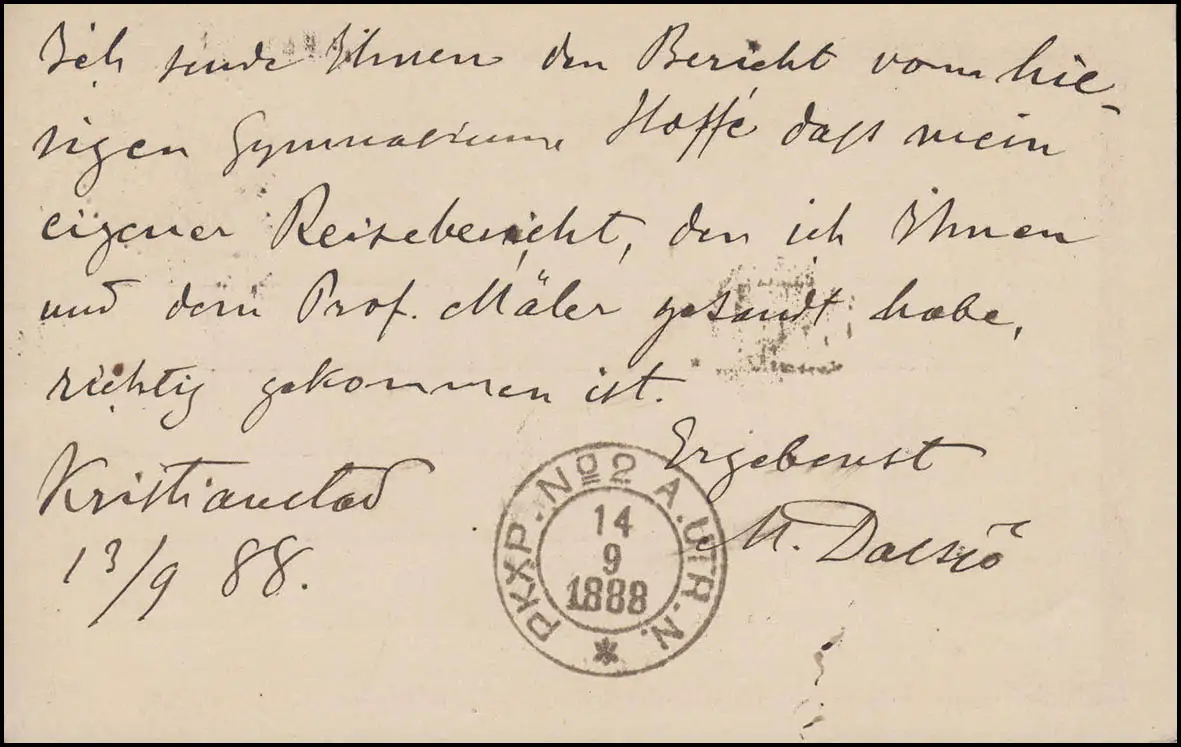 Ich sende Ihnen den Bericht vom hie-
sigen Gymnasium. Hoffe daß mein
eigener Reisebericht, den ich Ihnen
und dem Prof. Mäler gesandt habe,
richtig gekommen ist.
Ergebenst
Kristianstad
M. Dalsjö
13/9 88.
PKXP. No 2 A. UTR. N.
14
9
1888